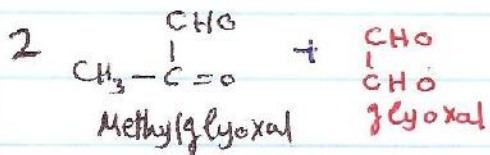 CHO
2 CH3 - C = O + CHO
CHO
Methylglyoxal glyoxal